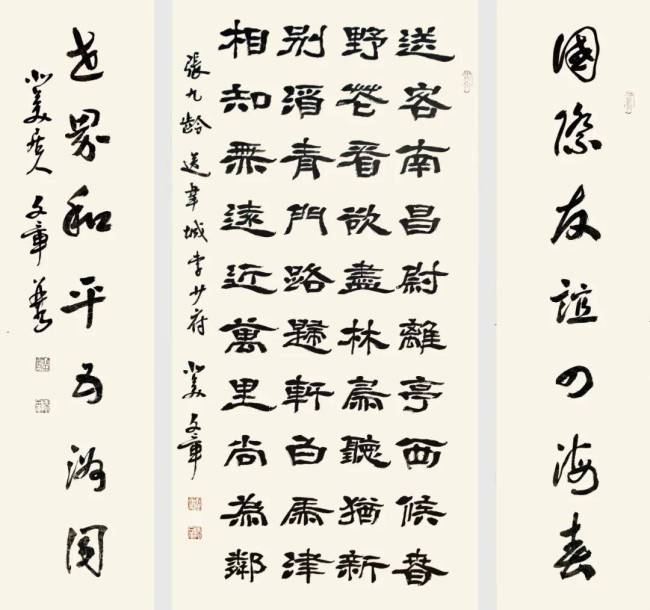 國際友誼四海春
送客南昌尉離亭西候春
野花看欲盡林鳥聽猶新
別酒青門路歸軒白馬津
相知無遠近萬里尚為鄰
張九齡 送韋城李少府 北美 文章
世界和平五洲
北美居人 文章